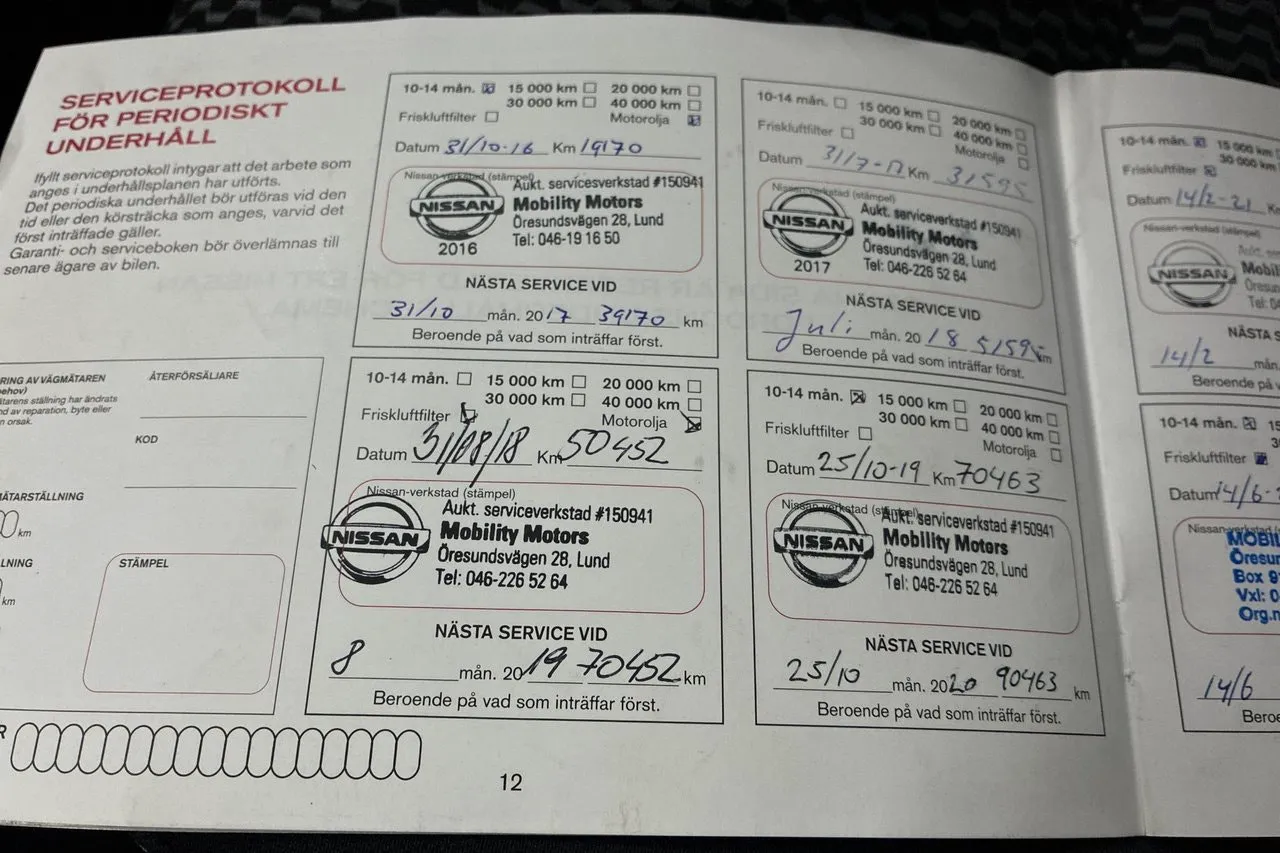 SERVICEPROTOKOLL
FÖR PERIODISKT
UNDERHÅLL
Ifyllt serviceprotokoll intygar att det arbete som
anges i underhållsplanen har utförts.
Det periodiska underhållet bör utföras vid den
tid eller den körsträcka som anges, varvid det
först inträffade gäller.
Garanti- och serviceboken bör överlämnas till
senare ägare av bilen.
RING AV VÄGMÄTAREN
behov)
ätarens ställning har ändrats
d av reparation, byte eller
n orsak.
ÅTERFÖRSÄLJARE
KOD
MÄTARSTÄLLNING
km
LNING
km
STÄMPEL
R
10-14 mån. 15 000 km 20 000 km
30 000 km 40 000 km
Friskluftfilter Motorolja
Datum 31/10-16 Km 19170
Nissan-verkstad (stämpel)
NISSAN
2016
Aukt. servicesverkstad #150941
Mobility Motors
Öresundsvägen 28, Lund
Tel: 046-19 16 50
NÄSTA SERVICE VID
31/10 mån. 2017 39170 km
Beroende på vad som inträffar först.
10-14 mån. 15 000 km 20 000 km
30 000 km 40 000 km
Friskluftfilter Motorolja
Datum 31/7-17 Km 31595
Nissan-verkstad (stämpel)
NISSAN
2017
Aukt. serviceverkstad #150941
Mobility Motors
Öresundsvägen 28, Lund
Tel: 046-226 52 64
NÄSTA SERVICE VID
Juli mån. 2018 51595 km
Beroende på vad som inträffar först.
10-14 mån. 15 000 km 20 000 km
30 000 km 40 000 km
Friskluftfilter Motorolja
Datum 31/08/18 Km 50452
Nissan-verkstad (stämpel)
NISSAN
Aukt. serviceverkstad #150941
Mobility Motors
Öresundsvägen 28, Lund
Tel: 046-226 52 64
NÄSTA SERVICE VID
8 mån. 2019 70452 km
Beroende på vad som inträffar först.
10-14 mån. 15 000 km 20 000 km
30 000 km 40 000 km
Friskluftfilter Motorolja
Datum 25/10-19 Km 70463
Nissan-verkstad (stämpel)
NISSAN
Aukt. serviceverkstad #150941
Mobility Motors
Öresundsvägen 28, Lund
Tel: 046-226 52 64
NÄSTA SERVICE VID
25/10 mån. 2020 90463 km
Beroende på vad som inträffar först.
12
10-14 mån. 15 000 km
30 000 km
Friskluftfilter
Datum 14/2-21 K
Nissan-verkstad (stämpel)
NISSAN
Aukt. se
Mobil
Öresun
Tel: 0
NÄSTA S
14/2 mån.
Beroende på va
10-14 mån. 15
30
Friskluftfilter
Datum 14/6-
Nissan-verkstad
MOBIL
Öresu
Box 9
Vxl: 0
Org.n
14/6
Beroe